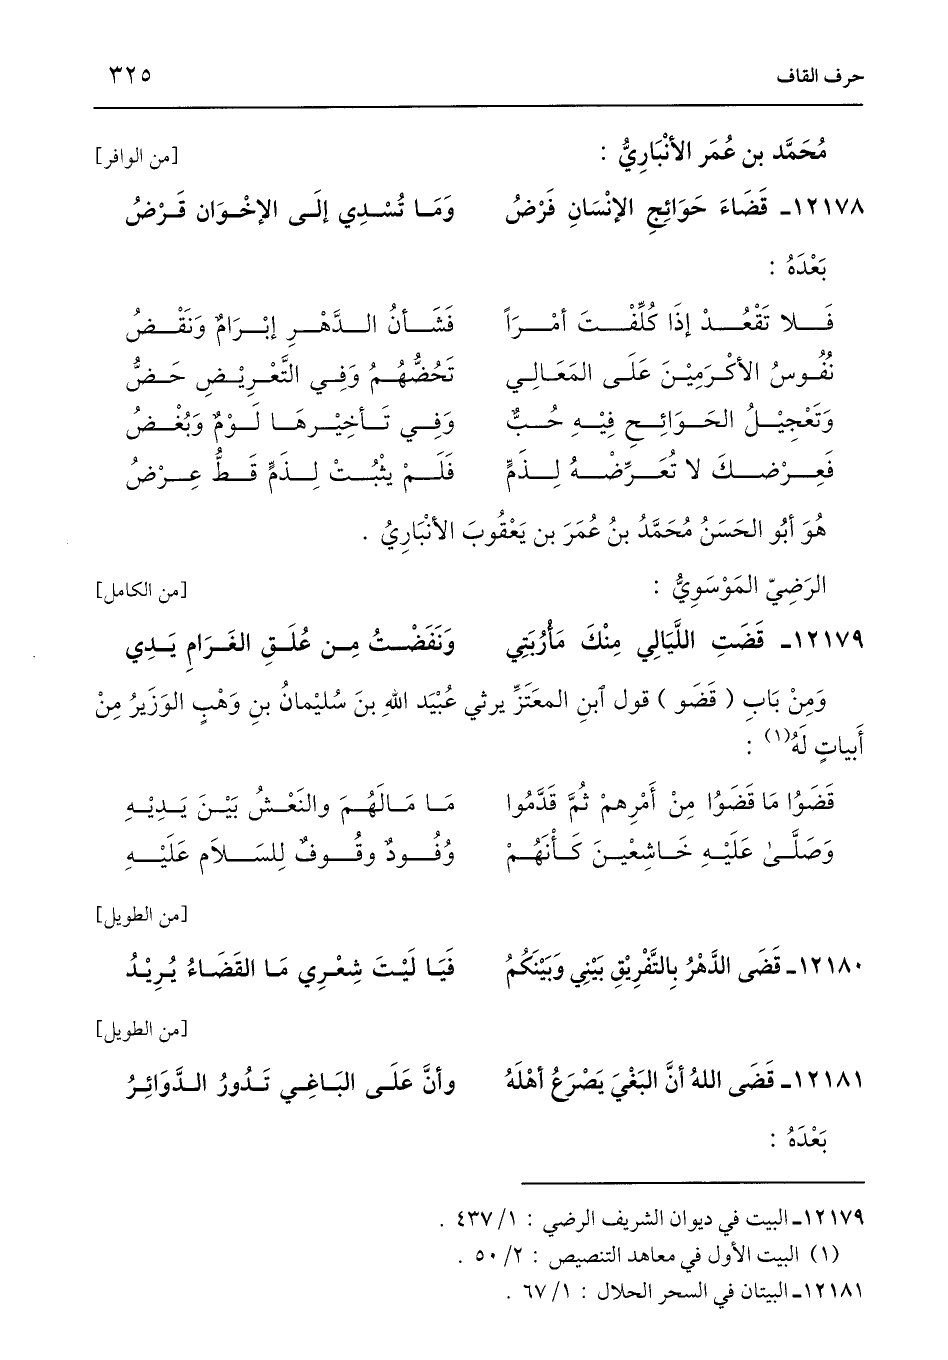 حرف القاف ٣٢٥
مُحَمَّد بن عُمَر الأنْبَارِيُّ : [من الوافر]
١٢١٧٨ـ قَضَاءَ حَوَائِجِ الإنْسَانِ فَرْضُ وَمَا تُسْدِي إلَى الإخْوَان قَرْضُ
بَعْدَهُ :
فَلا تَقْعُدْ إذَا كُلِّفْتَ أمْرَاً فَشَأنُ الدَّهْرِ إبْرَامٌ وَنَقْضُ
نُفُوسُ الأكْرَمِيْنَ عَلَى المَعَالِي تَحُضُّهُمُ وَفِي التَّعْرِيْضِ حَضُّ
وَتَعْجِيْلُ الحَوَائِجِ فِيْهِ حُبٌّ وَفِي تَأخِيْرِهَا لَوْمٌ وَبُغْضُ
فَعِرْضكَ لا تُعَرِّضْهُ لِذَمٍّ فَلَمْ يثْبُتْ لِذَمٍّ قَطُّ عِرْضُ
هُوَ أبُو الحَسَنُ مُحَمَّدُ بنُ عُمَرَ بن يَعْقُوبَ الأنْبَارِيُ .
الرَضِيّ المَوْسَوِيُّ : [من الكامل]
١٢١٧٩ـ قَضَتِ اللَّيَالِي مِنْكَ مَأرُبَتِي وَنَفَضْتُ مِن عُلَقِ الغَرَامِ يَدِي
وَمِنْ بَابِ ( قَضَو ) قول ٱبنِ المعتَزِّ يرثي عبُيَد اللهِ بنَ سُليمانُ بنِ وَهْبٍ الوَزَيرُ مِنْ
أَبياتٍ لَهُ(١) :
قَضَوُا مَا قَضَوُا مِنْ أَمْرِهمْ ثُمَّ قَدَّمُوا مَا مَالَهُمَ والنَعْشُ بَيْنَ يَدِيْهِ
وَصَلَّىٰ عَلَيْهِ خَاشِعْينَ كَأنَهُمْ وُفُودٌ وقُوفٌ لِلسَلاَمِ عَلَيْهِ
[من الطويل]
١٢١٨٠ـ قَضَى الدَّهْرُ بِالتَّفْرِيْقِ بَيْنِي وَبَيْنَكُمُ فَيَا لَيْتَ شِعْرِي مَا القَضَاءُ يُرِيْدُ
[من الطويل]
١٢١٨١ـ قَضَى اللهُ أنَّ البَغْيَ يَصْرَعُ أهْلَهُ وأنَّ عَلَى البَاغِي تَدُورُ الدَّوَائِرُ
بَعْدَهُ :
١٢١٧٩ـ البيت في ديوان الشريف الرضي : ١/ ٤٣٧ .
(١) البيت الأول في معاهد التنصيص : ٢/ ٥٠ .
١٢١٨١ـ البيتان في السحر الحلال : ١/ ٦٧ .